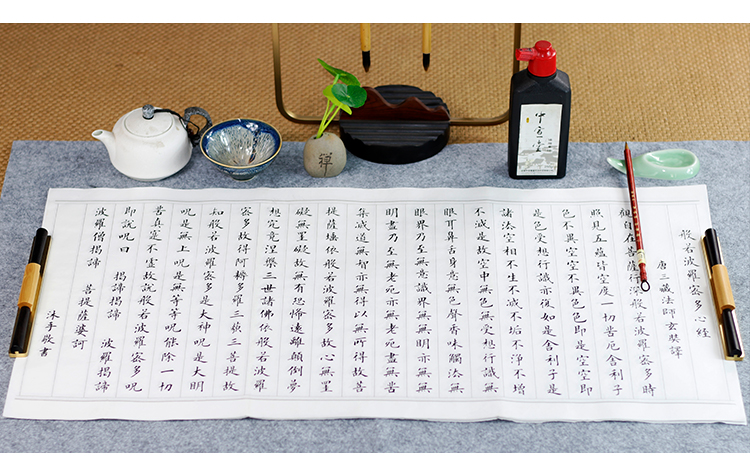 般若波羅蜜多心經
唐三藏法師玄奘譯
觀自在菩薩行深般若波羅蜜多時
照見五蘊皆空度一切苦厄舍利子
色不異空空不異色色即是空空即
是色受想行識亦復如是舍利子是
諸法空相不生不滅不垢不淨不增
不減是故空中無色無受想行識無
眼耳鼻舌身意無色聲香味觸法無
眼界乃至無意識界無無明亦無無
明盡乃至無老死亦無老死盡無苦
集滅道無智亦無得以無所得故菩
提薩埵依般若波羅蜜多故心無罣
礙無罣礙故無有恐怖遠離顛倒夢
想究竟涅槃三世諸佛依般若波羅
蜜多故得阿耨多羅三藐三菩提故
知般若波羅蜜多是大神呪是大明
呪是無上呪是無等等呪能除一切
苦真實不虛故說般若波羅蜜多呪
即說呪曰 揭諦揭諦 波羅揭諦
波羅僧揭諦 菩提薩婆訶
沐手敬書
禪